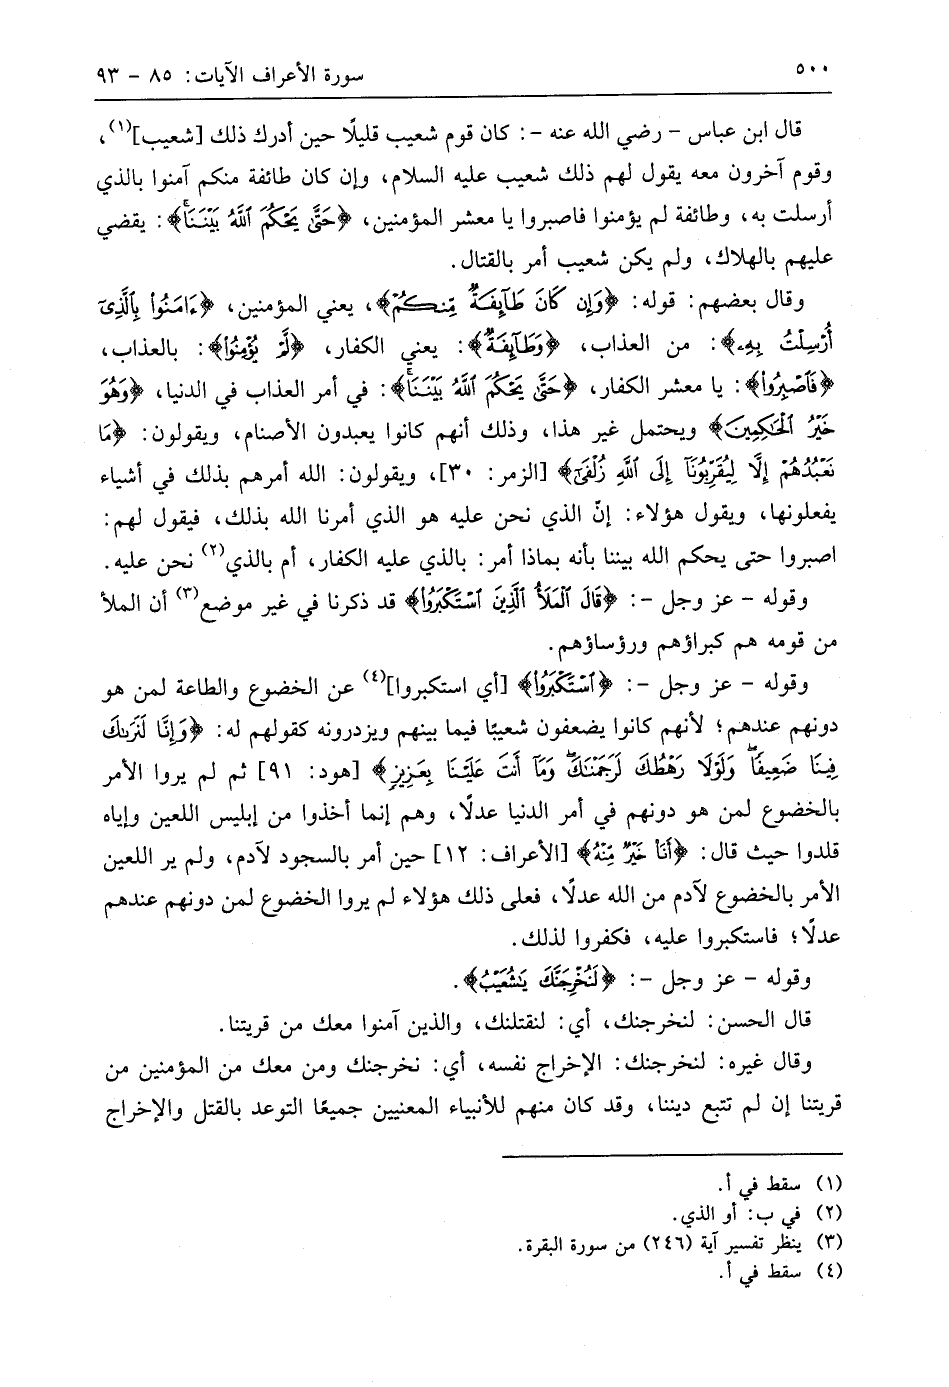 ٥٠٠
سورة الأعراف الآيات: ٨٥ - ٩٣
قال ابن عباس - رضي الله عنه -: كان قوم شعيب قليلًا حين أدرك ذلك [شعيب](١)،
وقوم آخرون معه يقول لهم ذلك شعيب عليه السلام، وإن كان طائفة منكم آمنوا بالذي
أرسلت به، وطائفة لم يؤمنوا فاصبروا يا معشر المؤمنين، ﴿حَتَّىٰ يَحْكُمَ ٱللَّهُ بَيْنَنَاۚ﴾: يقضي
عليهم بالهلاك، ولم يكن شعيب أمر بالقتال.
وقال بعضهم: قوله: ﴿وَإِن كَانَ طَآئِفَةٌ مِّنكُمْ﴾، يعني المؤمنين، ﴿ءَامَنُوا۟ بِٱلَّذِىٓ
أُرْسِلْتُ بِهِۦ﴾: من العذاب، ﴿وَطَآئِفَةٌ﴾: يعني الكفار، ﴿لَّمْ يُؤْمِنُوا۟﴾: بالعذاب،
﴿فَٱصْبِرُوا۟﴾: يا معشر الكفار، ﴿حَتَّىٰ يَحْكُمَ ٱللَّهُ بَيْنَنَاۚ﴾: في أمر العذاب في الدنيا، ﴿وَهُوَ
خَيْرُ ٱلْحَٰكِمِينَ﴾ ويحتمل غير هذا، وذلك أنهم كانوا يعبدون الأصنام، ويقولون: ﴿مَا
نَعْبُدُهُمْ إِلَّا لِيُقَرِّبُونَآ إِلَى ٱللَّهِ زُلْفَىٰٓ﴾ [الزمر: ٣٠]، ويقولون: الله أمرهم بذلك في أشياء
يفعلونها، ويقول هؤلاء: إنّ الذي نحن عليه هو الذي أمرنا الله بذلك، فيقول لهم:
اصبروا حتى يحكم الله بيننا بأنه بماذا أمر: بالذي عليه الكفار، أم بالذي(٢) نحن عليه.
وقوله - عز وجل -: ﴿قَالَ ٱلْمَلَأُ ٱلَّذِينَ ٱسْتَكْبَرُوا۟﴾ قد ذكرنا في غير موضع(٣) أن الملأ
من قومه هم كبراؤهم ورؤساؤهم.
وقوله - عز وجل -: ﴿ٱسْتَكْبَرُوا۟﴾ [أي استكبروا](٤) عن الخضوع والطاعة لمن هو
دونهم عندهم؛ لأنهم كانوا يضعفون شعيبًا فيما بينهم ويزدرونه كقولهم له: ﴿وَإِنَّا لَنَرَىٰكَ
فِينَا ضَعِيفًاۖ وَلَوْلَا رَهْطُكَ لَرَجَمْنَٰكَۖ وَمَآ أَنتَ عَلَيْنَا بِعَزِيزٍ﴾ [هود: ٩١] ثم لم يروا الأمر
بالخضوع لمن هو دونهم في أمر الدنيا عدلًا، وهم إنما أخذوا من إبليس اللعين وإياه
قلدوا حيث قال: ﴿أَنَا۠ خَيْرٌ مِّنْهُ﴾ [الأعراف: ١٢] حين أمر بالسجود لآدم، ولم ير اللعين
الأمر بالخضوع لآدم من الله عدلًا، فعلى ذلك هؤلاء لم يروا الخضوع لمن دونهم عندهم
عدلًا؛ فاستكبروا عليه، فكفروا لذلك.
وقوله - عز وجل -: ﴿لَنُخْرِجَنَّكَ يَٰشُعَيْبُ﴾.
قال الحسن: لنخرجنك، أي: لنقتلنك، والذين آمنوا معك من قريتنا.
وقال غيره: لنخرجنك: الإخراج نفسه، أي: نخرجنك ومن معك من المؤمنين من
قريتنا إن لم تتبع ديننا، وقد كان منهم للأنبياء المعنيين جميعًا التوعد بالقتل والإخراج
(١) سقط في أ.
(٢) في ب: أو الذي.
(٣) ينظر تفسير آية (٢٤٦) من سورة البقرة.
(٤) سقط في أ.